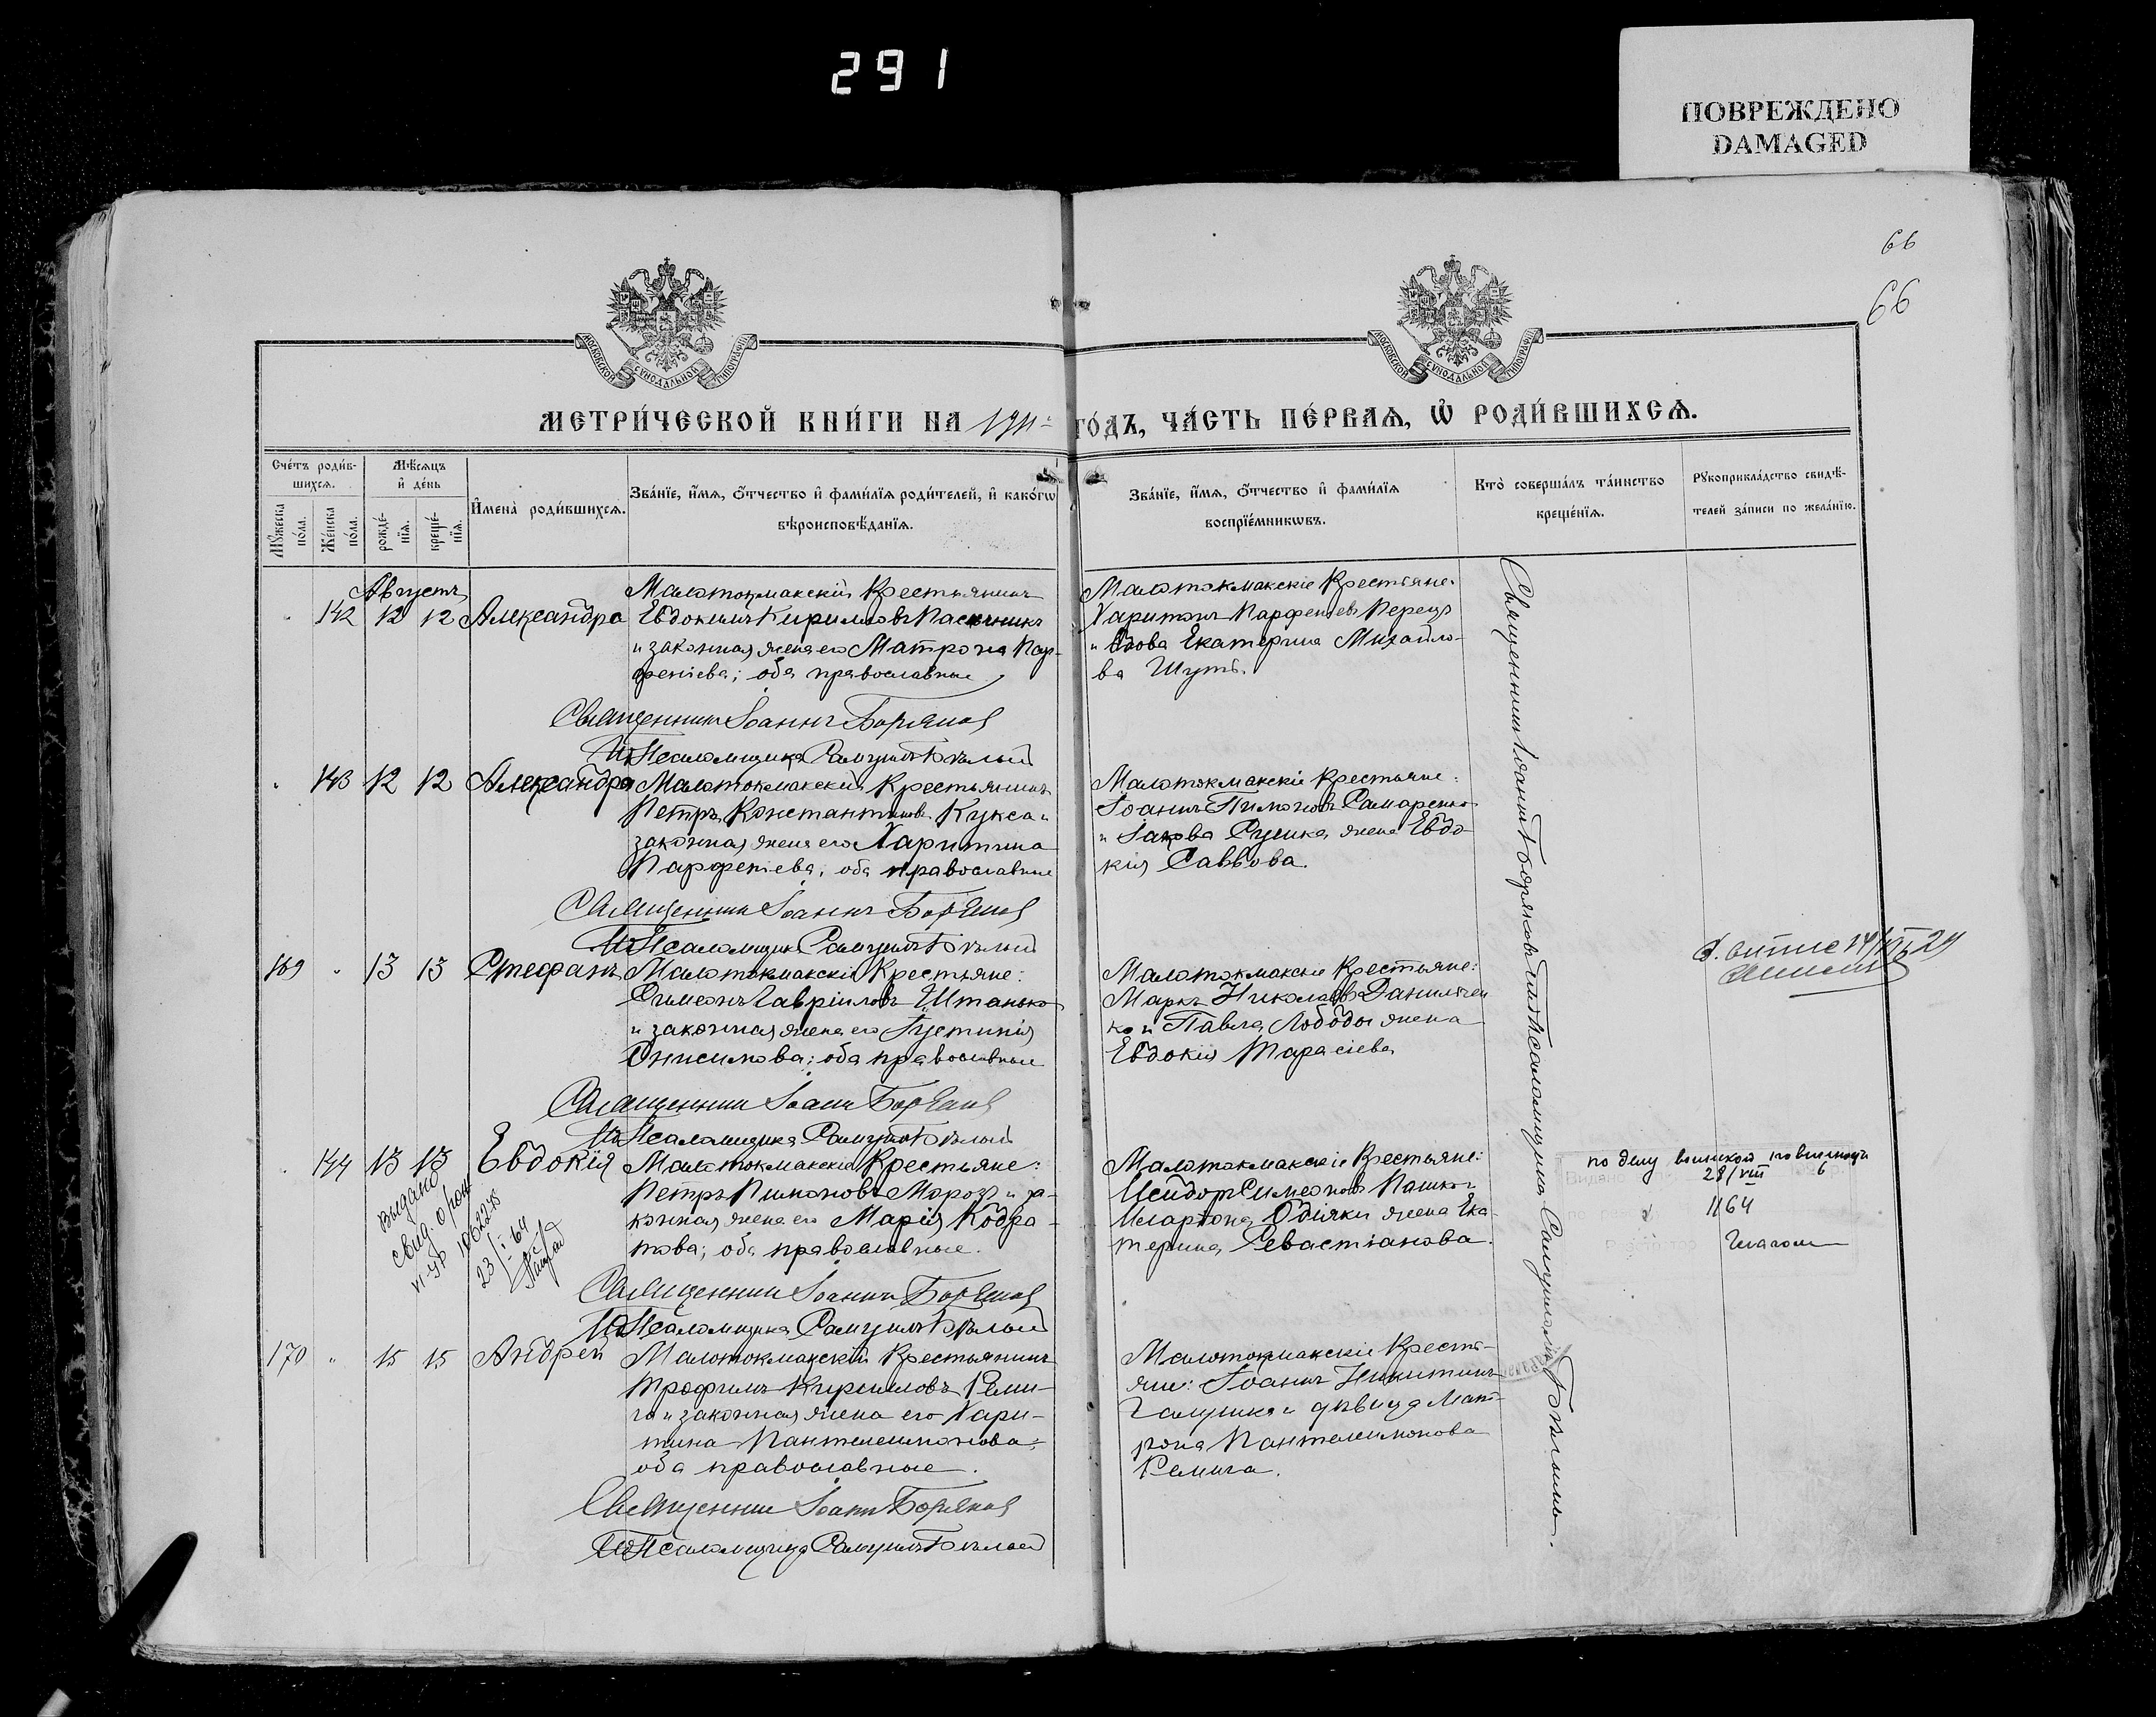 291
ПОВРЕЖДЕНО
DAMAGED
66
66
МОСКОВСКОЙ СѴНОДАЛЬНОЙ ТИПОГРАФІИ
МОСКОВСКОЙ СѴНОДАЛЬНОЙ ТИПОГРАФІИ
МЕТРИ́ЧЕСКОЙ КНИ́ГИ НА 1911 ГО́ДЪ, ЧА́СТЬ ПЕ́РВАѦ, Ѡ РОДИ́ВШИХСѦ.
Сче́тъ роди́в-
шихсѧ.
Мꙋ́жеска по́ла.
Же́нска по́ла.
Мѣ́сѧцъ
и҆ де́нь
рожде́-
нїѧ.
креще́-
нїѧ.
И҆мена̀ роди́вшихсѧ.
Зва́нїе, и҆́мѧ, ѻ҆́тчество и҆ фами́лїѧ роди́телей, и҆ како́гѡ
вѣроисповѣ́данїѧ.
Зва́нїе, и҆́мѧ, ѻ҆́тчество и҆ фами́лїѧ
воспрїе́мникѡвъ.
Кто̀ соверша́лъ та́инство
креще́нїѧ.
Рꙋкоприкла́дство свидѣ́-
телей за́писи по жела́нїю.
Августъ
142 12 12 Александра
Малотокмакскій Крестьянинъ
Евдокимъ Кирилловъ Пасишникъ
и законная жена его Матрона Пар-
феніева; оба православные
Священникъ Іоаннъ Боряковъ
ИдПсаломщика Самуилъ Бѣлый
Малотокмакскіе Крестьяне:
Харитонъ Парфеніевъ Перецъ
и вдова Екатерина Михайло-
ва Шуть.
143 12 12 Александра
Малотокмакскій Крестьянинъ
Петръ Константиновъ Кукса и
законная жена его Харитина
Парфеніева; оба православные
Священникъ Іоаннъ Боряковъ
ИдПсаломщика Самуилъ Бѣлый
Малотокмакскіе Крестьяне:
Іоаннъ Пимоновъ Самаренко
и Іакова Сушка жена Евдо-
кія Саввова.
169 13 13 Стефанъ
Малотокмакскіе Крестьяне:
Симеонъ Гавріиловъ Штанько
и законная жена его Іустинія
Онисимова; оба православные
Священникъ Іоаннъ Боряковъ
ИдПсаломщика Самуилъ Бѣлый
Малотокмакскіе Крестьяне:
Маркъ Николаевъ Данильчен
ко и Павла Лободы жена
Евдокія Тарасіева
144 13 13 Евдокія
Малотокмакскіе Крестьяне:
Петръ Пимоновъ Морозъ и за-
конная жена его Марія Кодра-
това; оба православные.
Священникъ Іоаннъ Боряковъ
ИдПсаломщика Самуилъ Бѣлый
Малотокмакскіе Крестьяне:
Исидоръ Симеоновъ Пашко и
Иларіона Одіяки жена Ека-
терина Севастіанова.
Выдано
свид. о рож
23/I-64
по делу воинской повинности
28/VIII 6
1164
170 15 15 Андрей
Малотокмакскій Крестьянинъ
Трофимъ Кирилловъ Реми-
га и законная жена его Хари-
тина Пантелеимонова;
оба православные.
Священникъ Іоаннъ Боряковъ
ИдПсаломщика Самуилъ Бѣлый
Малотокмакскіе Кресть-
яне: Іоаннъ Никитинъ
Галушка и дѣвица Мат-
рона Пантелеимонова
Ремига.
Священникъ Іоаннъ Боряковъ съ идПсаломщика Самуиломъ Бѣлымъ.